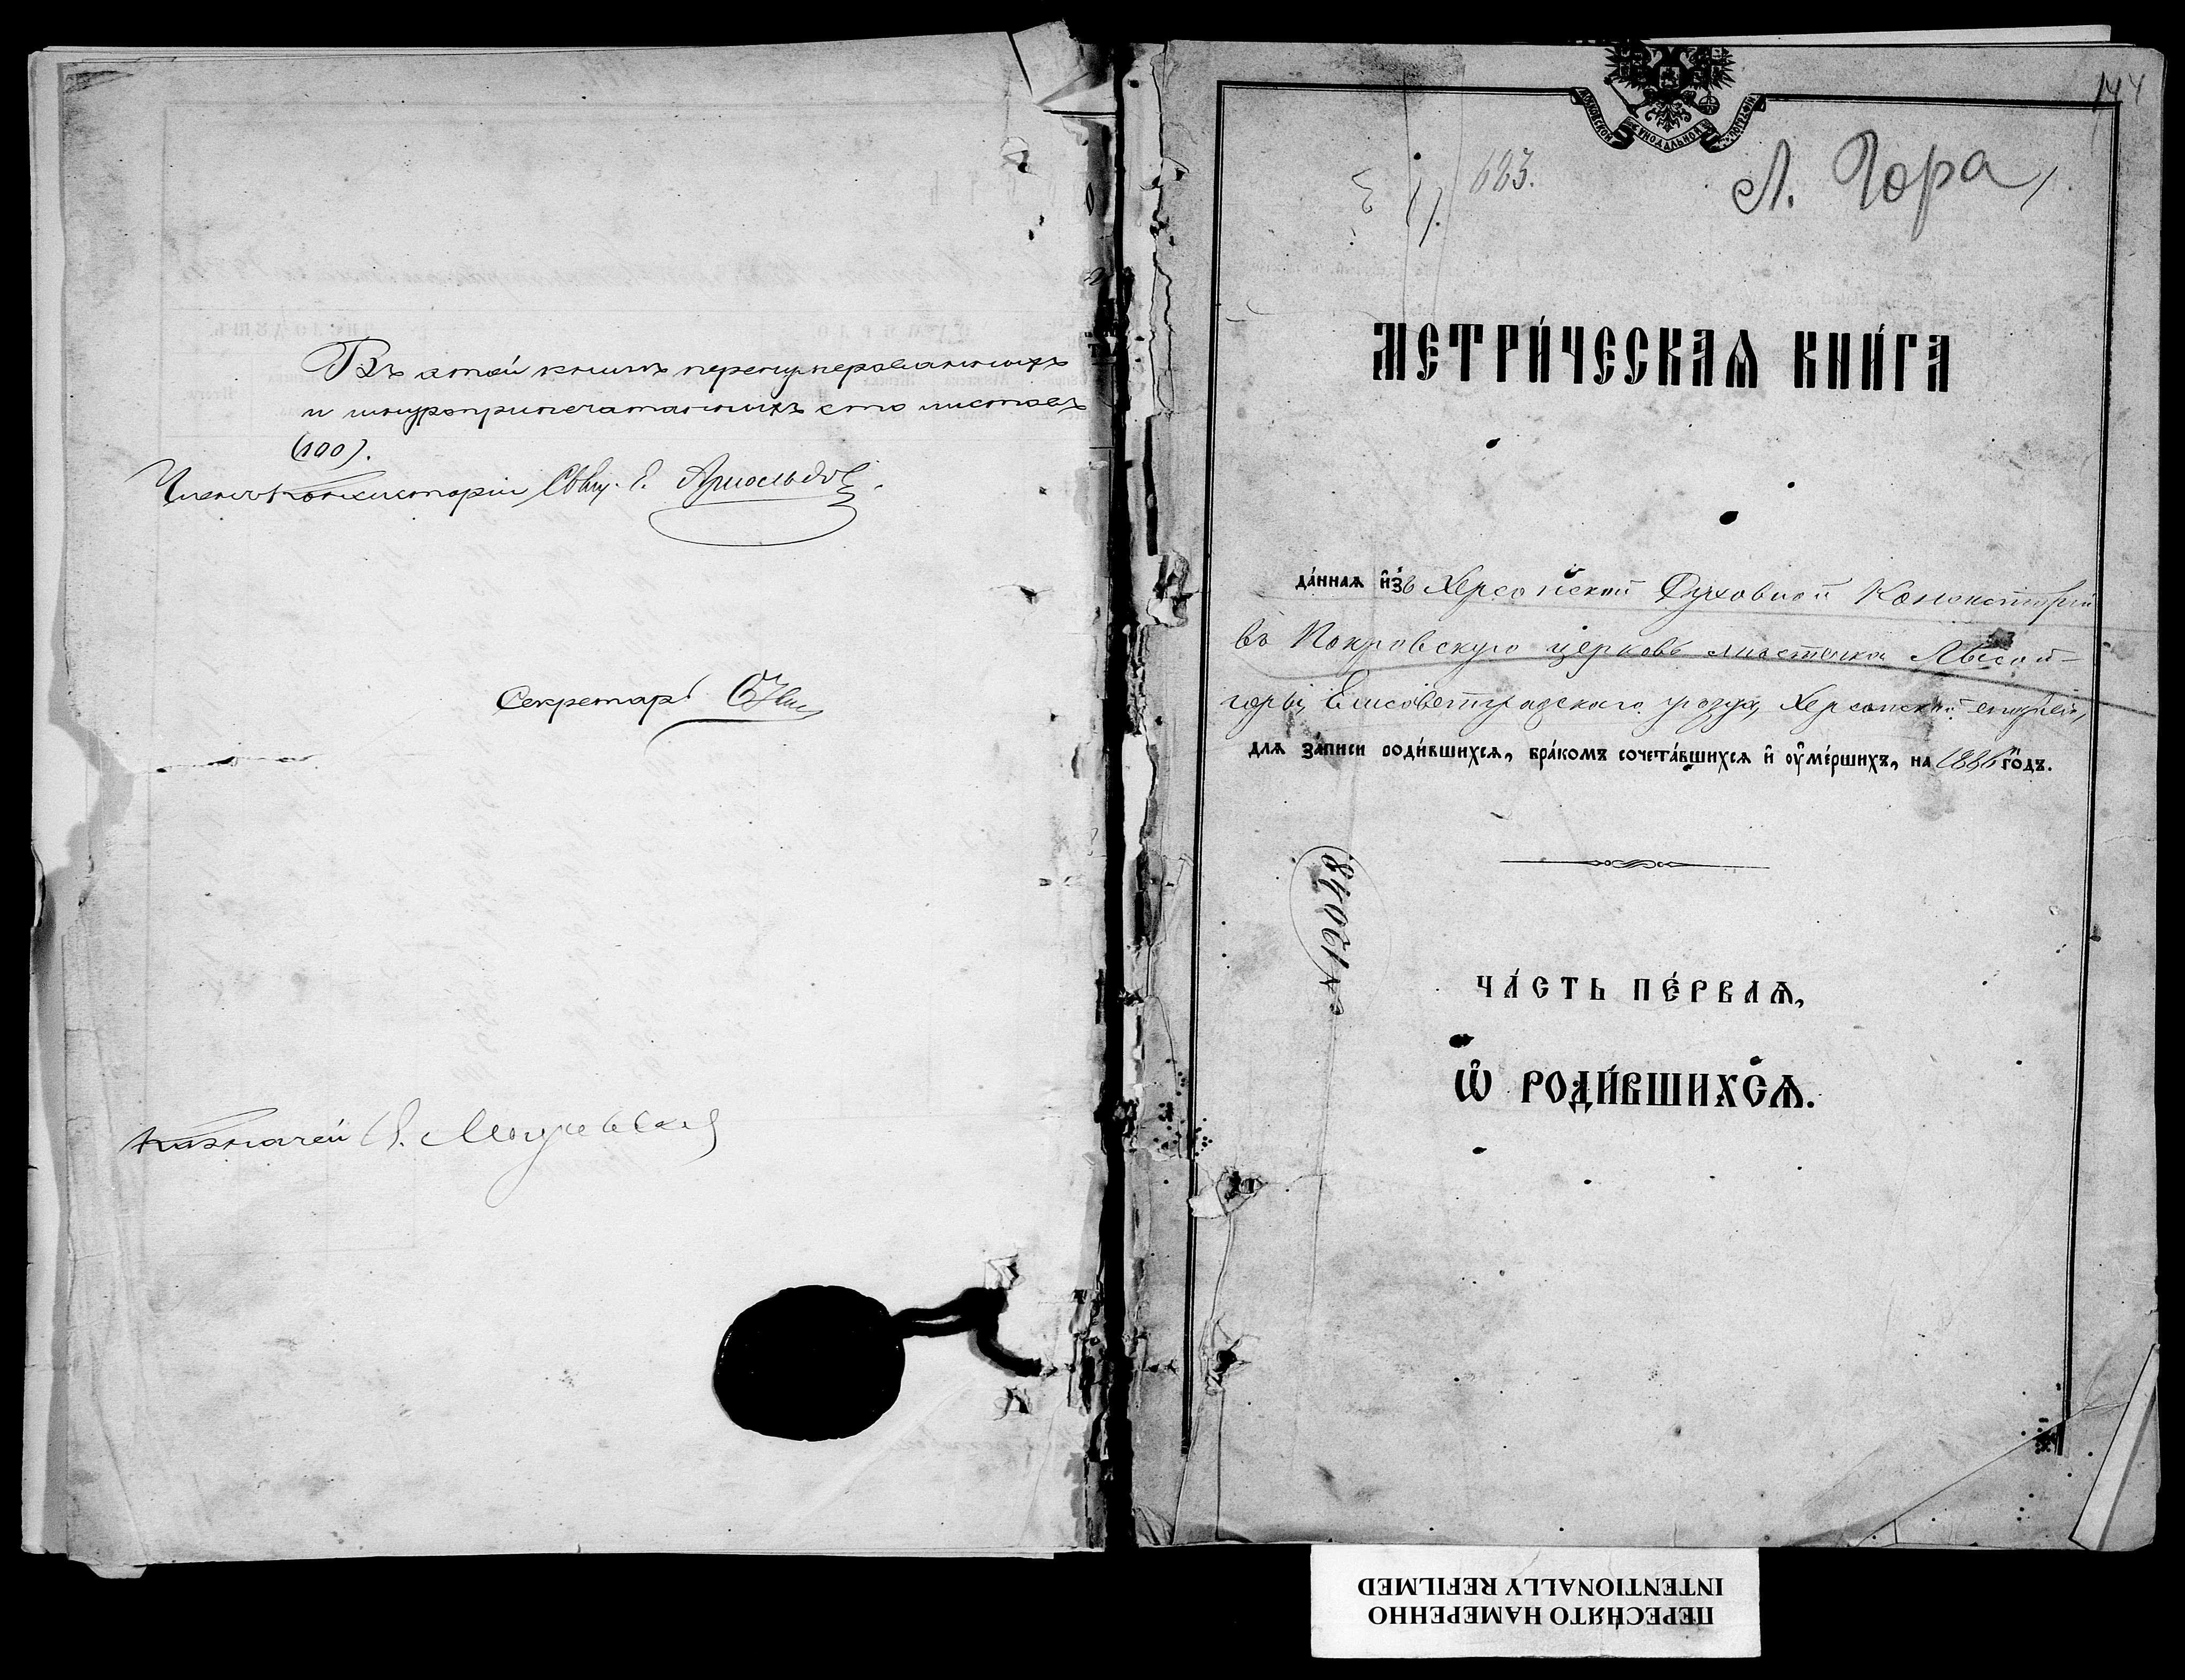 Въ этой книгѣ перенумерованныхъ
и шнуроприпечатанныхъ сто листовъ
(100).
Членъ Консисторіи Свящ. Е. Арнольдов
Секретарь
Казначей
МОСКОВСКОЙ СѴНОДАЛЬНОЙ ТѴПОГРАФІИ
144
683.
Л. Гора
МЕТРИ́ЧЕСКАѦ КНИ́ГА
да́ннаѧ и҆зъ Херсонской Духовной Консисторіи
въ Покровскую церковь мѣстечка Лысой-
горы, Елисаветградскаго уѣзда, Херсонской епархіи,
для за́писи роди́вшихсѧ, бра́комъ сочета́вшихсѧ и҆ ѹ҆ме́ршихъ, на 1886 го́дъ.
№ 19048
ЧА́СТЬ ПЕ́РВАѦ,
Ѽ РОДИ́ВШИХСѦ.
ПЕРЕСНЯТО НАМЕРЕННО
INTENTIONALLY REFILMED